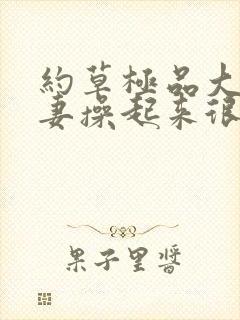 約草極品大
妻操起来很
果子里醬